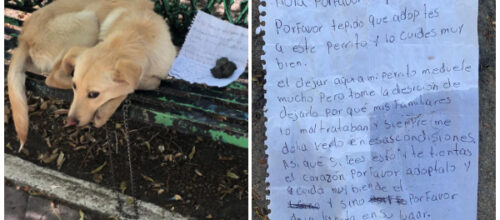 Hola PorFavor
PorFavor tengo que adoptes
a este perrito y lo cuides muy
bien.
el dejar aqui a mi perrito meduele
mucho pero tome la desición de
dejarlo por que mis familiares
lo maltrataban y siempre me
dolia verlo en esas condisiones.
Asi que si lees esto y te tientas
el corazón PorFavor adoptalo y
cuida muy bien de el
y sino PorFavor
nota en su lugar.